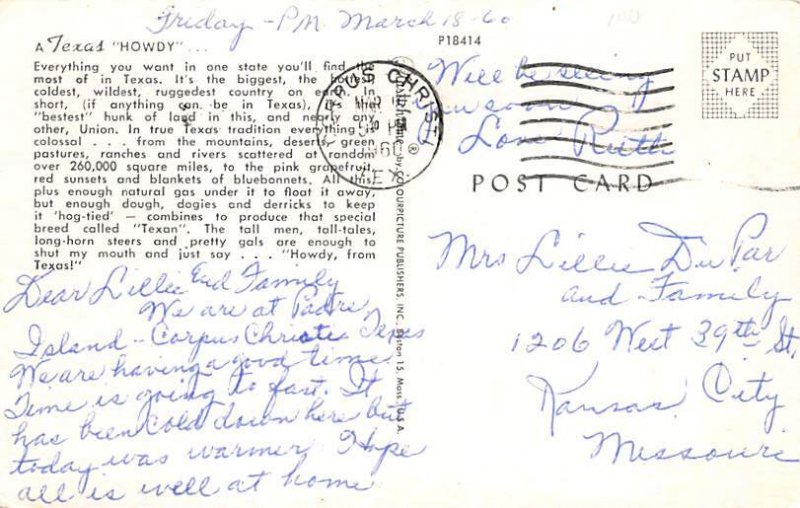 Friday - PM March 18-60
A Texas "HOWDY" ...
Everything you want in one state you'll find the
most of in Texas. It's the biggest, the hottest,
coldest, wildest, ruggedest country on earth. In
short, (if anything can be in Texas), it's that
"bestest" hunk of land in this, and nearly any
other, Union. In true Texas tradition everything is
colossal . . . from the mountains, desert, green
pastures, ranches and rivers scattered at random
over 260,000 square miles, to the pink grapefruit,
red sunsets and blankets of bluebonnets. All this,
plus enough natural gas under it to float it away,
but enough dough, dogies and derricks to keep
it 'hog-tied' — combines to produce that special
breed called "Texan". The tall men, tall-tales,
long-horn steers and pretty gals are enough to
shut my mouth and just say . . . "Howdy, from
Texas!"
Dear Lillie And Family
We are at Padre
Island - Corpus Christe Texas
We are having a good time.
Time is going to fast. It
has been cold down here but
today was warmer. Hope
all is well at home
P18414
Will be seeing
you soon
Love Ruth
CORPUS CHRISTI
TEX
1960
by COLOURPICTURE PUBLISHERS, INC., Boston 15, Mass., U.S.A.
PUT
STAMP
HERE
POST CARD
Mrs Lillie Du Par
and Family
1206 West 39th St,
Kansas City
Missouri